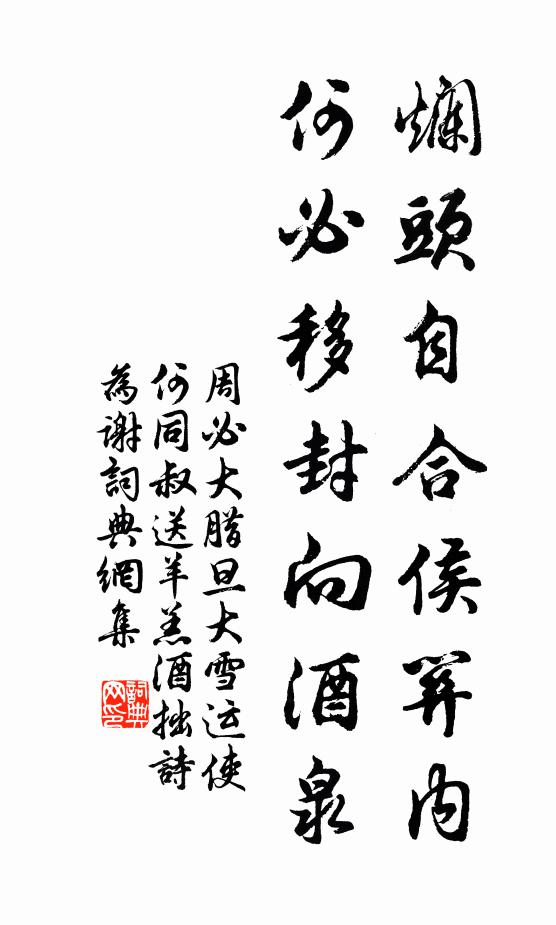 爛頭自合侯關內
何必移封向酒泉
周必大腊旦大雪运使
何同叔送羊羔酒拙詩
為謝詞典網集
詞典
网印